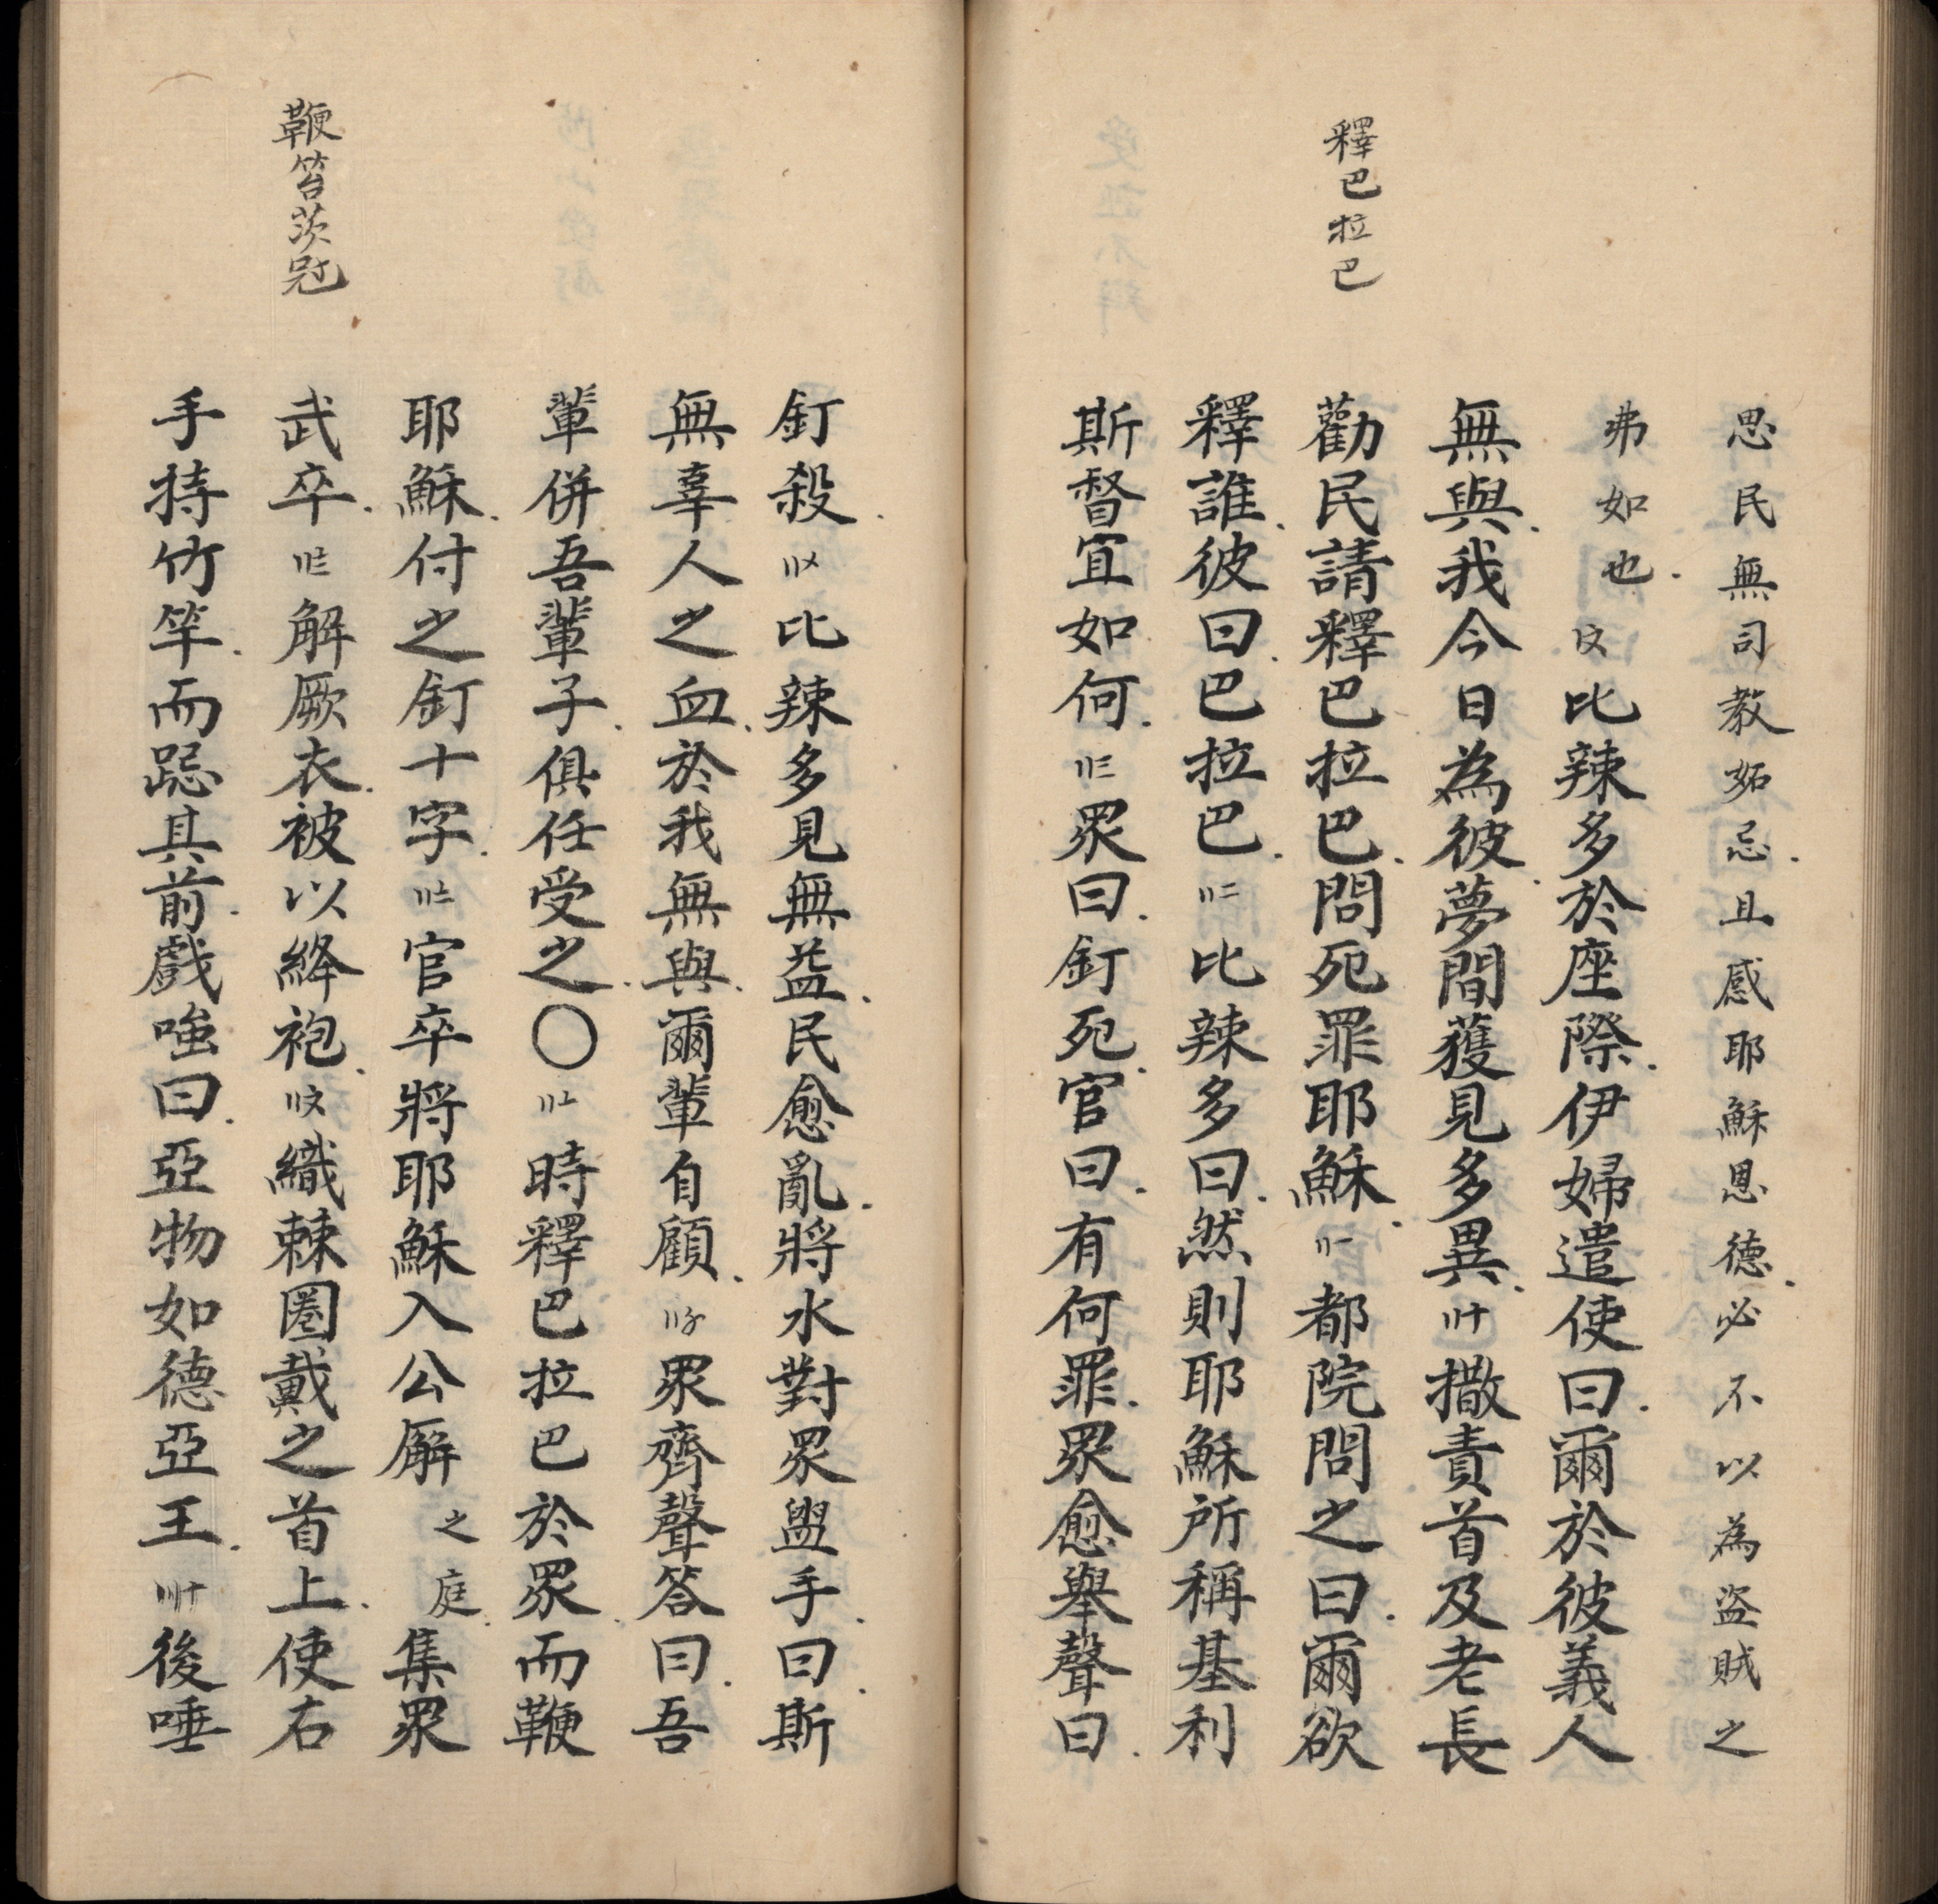 釋巴拉巴
思民無司教妬忌.且感耶穌恩德.必不以為盜賊之
弗如也.〩比辣多於座際.伊婦遣使曰.爾於彼義人
無與.我今日為彼.夢間獲見多異.〢十撒責首及老長
勸民請釋巴拉巴.問死罪耶穌.〢一都院問之曰.爾欲
釋誰.彼曰.巴拉巴.〢二比辣多曰.然則耶穌所稱基利
斯督宜如何.〢三眾曰.釘死.官曰.有何罪.眾愈舉聲曰.
鞭笞茨冠
釘殺.〢〤比辣多見無益.民愈亂.將水對眾盥手.曰.斯
無辜人之血.於我無與.爾輩自顧.〢〥眾齊聲答曰.吾
輩併吾輩子.俱任受之.〇〢〦時釋巴拉巴於眾.而鞭
耶穌.付之釘十字.〢〧官卒將耶穌入公廨之庭.集眾
武卒.〢〨解厥衣.被以絳袍.〢〩織棘圈戴之首上.使右
手持竹竿.而跽其前.戲嗤曰.亞物如德亞王.〣十後唾